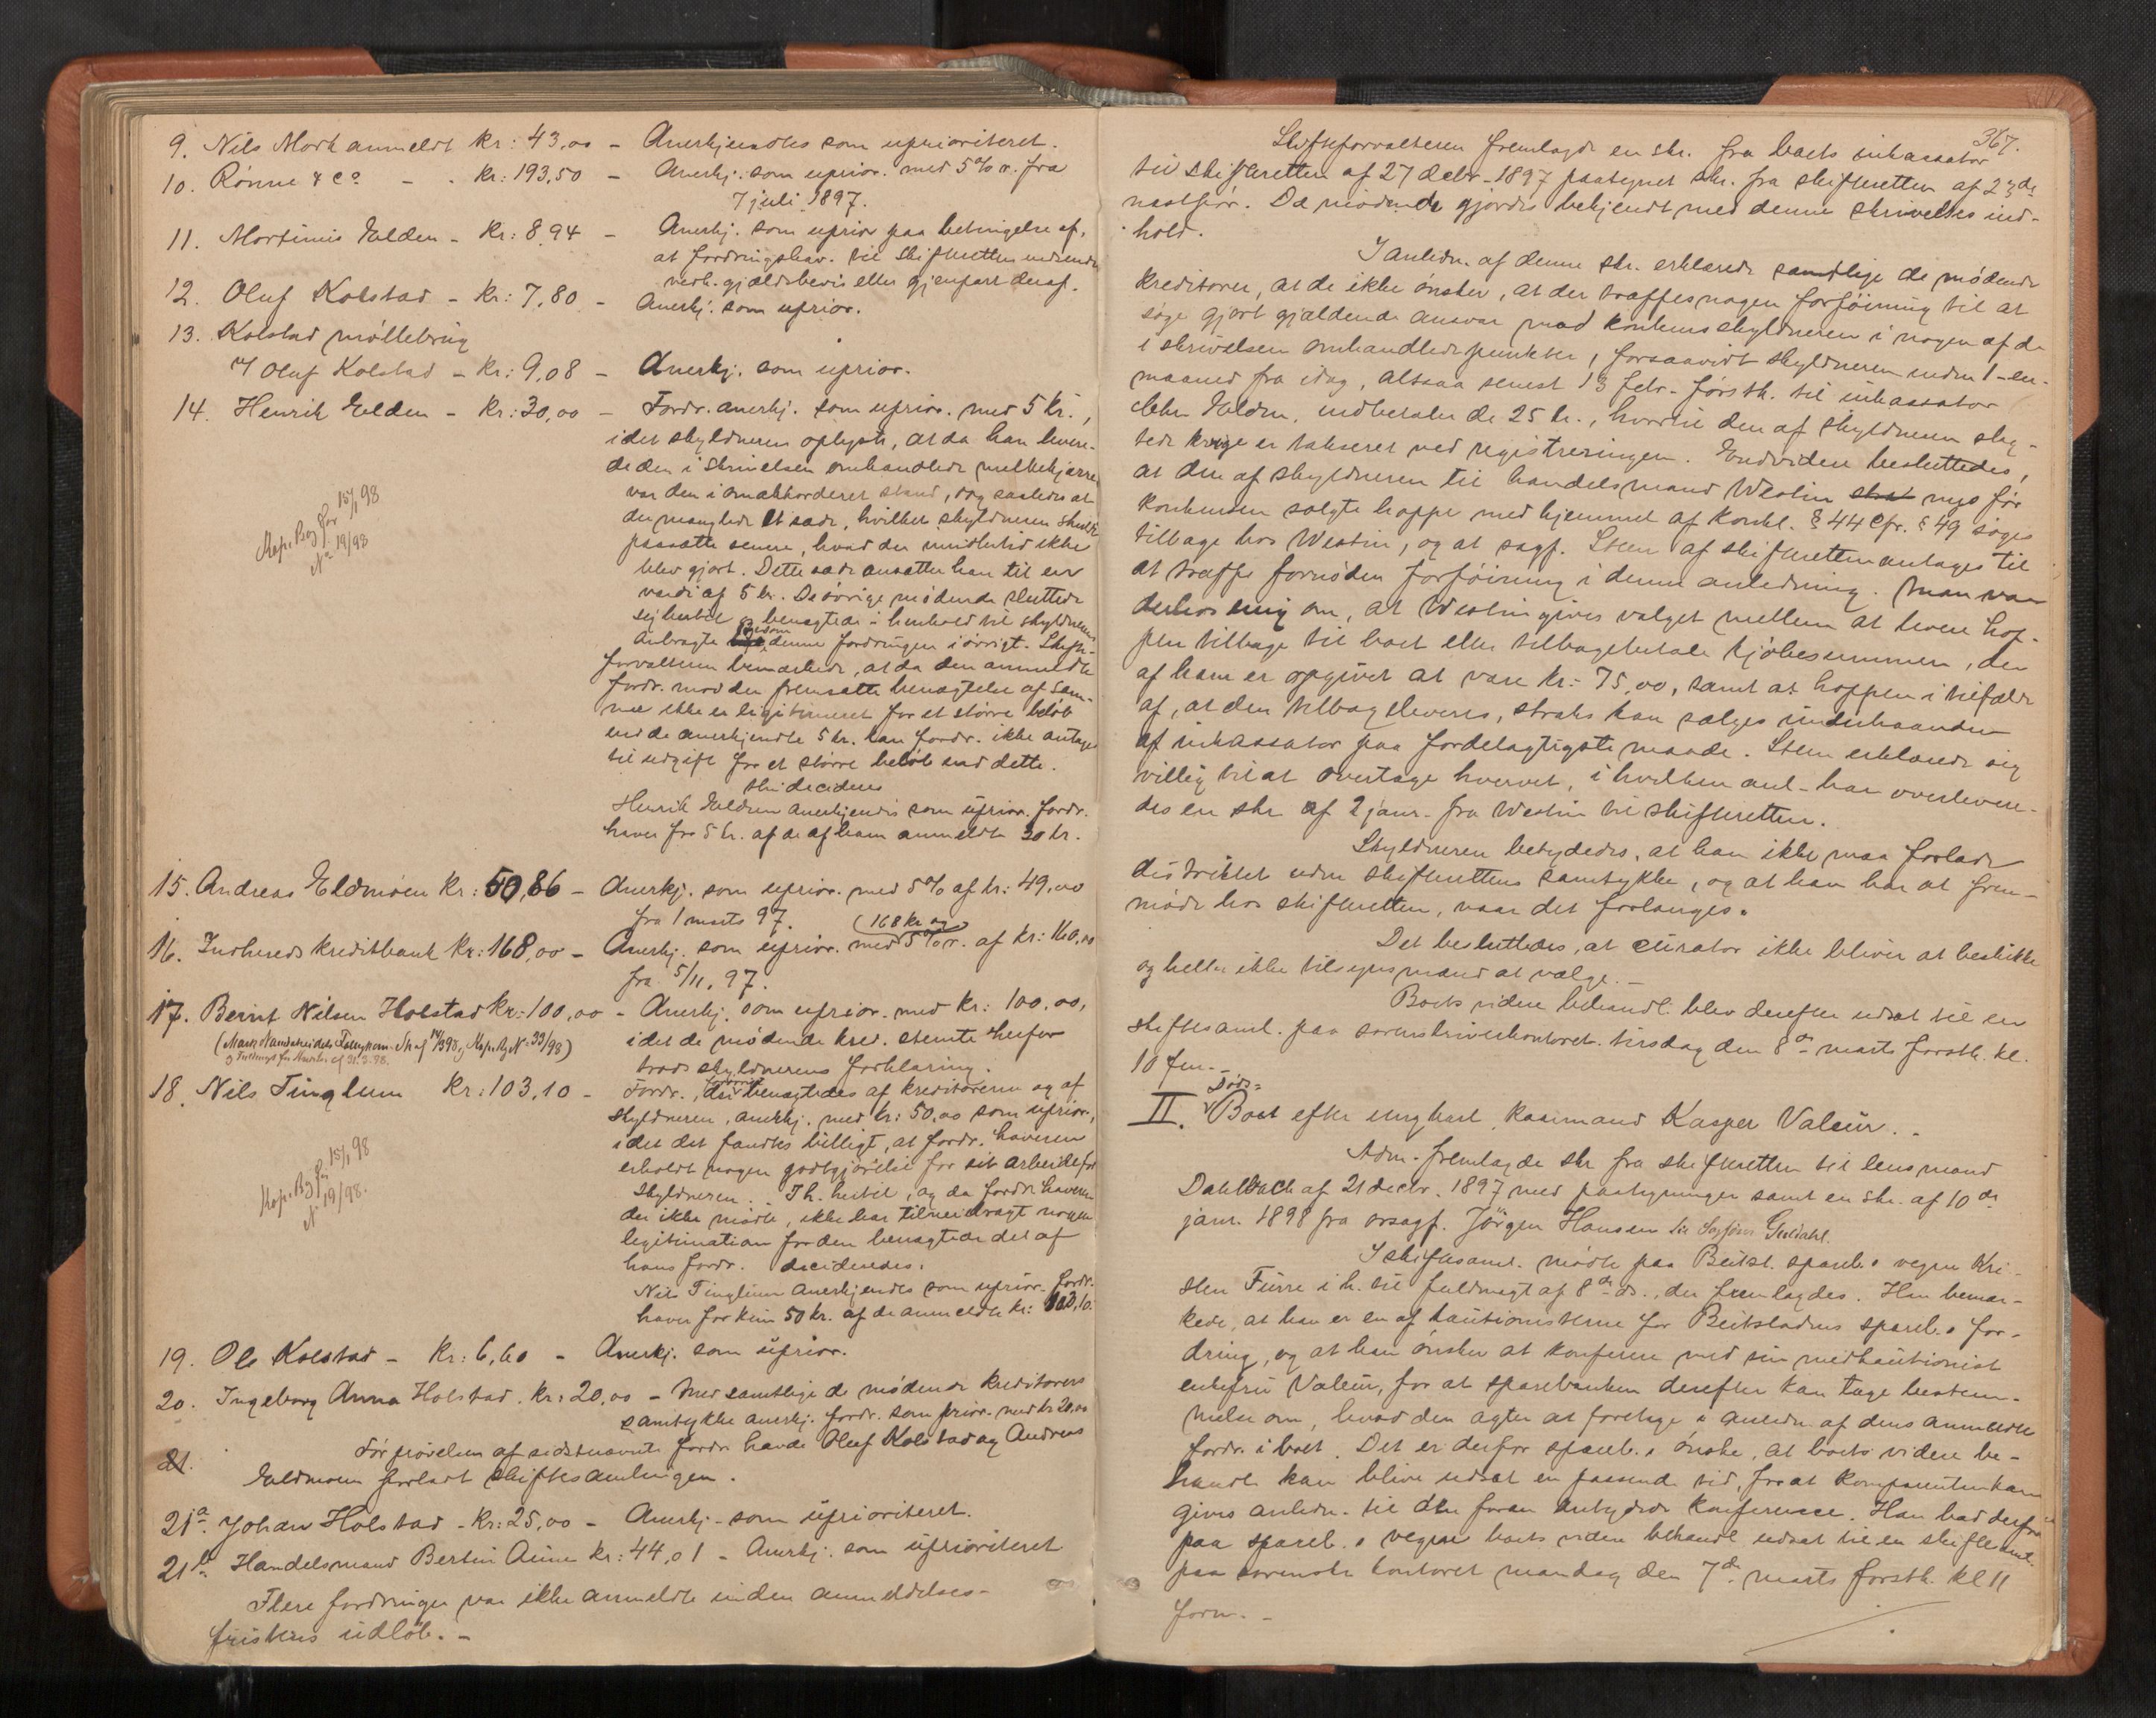 9. Nils Mork anmeldt kr: 43,00 - Anerkjendtes som uprioriteret.
10. Rönne & Co - - kr: 193,50 - Anerkj. som uprior. med 5% r. fra
7 juli 1897.
11. Mortinus Elden - kr: 8,94 - Anerkj. som uprior paa betingelse af,
at fordringshav. til Skifteretten indsender
verk. gjældsbevis eller gjenpart deraf.
12. Oluf Kolstad - kr: 7,80 - Anerkj. som uprior.
13. Kolstad möllebrug
v/ Oluf Kolstad - kr: 9,08 - Anerkj. som uprior.
14. Henrik Elden - kr: 30,00 - Fordr. anerkj. som uprior. med 5 kr.,
idet skyldneren oplyste, at da han levere-
de den i skrivelsen omhandlede melkekjærre
var den i omakkorderet stand, dog saaledes at
der manglede et sæde, hvilket skyldneren skulde
paasætte senere, hvad der imidlertid ikke
blev gjort. Dette sæde ansætter han til en
værdi af 5 kr. De övrige mödende sluttede
sig hertil og benegtede i henhold til skyldnerens
anbragte denne fordringen i övrigt. Skifte-
forvalteren bemærkede, at da den anmeldte
fordr. mod den fremsatte benegtelse af sam-
me ikke er legitimeret for et större belöb
end de anerkjendte 5 kr. kan fordr. ikke antages
til udgift for et större belöb end dette.
thi decideres
Henrik Elden anerkjendes som uprior. fordr.
haver for 5 kr. af de af ham anmeldte 30 kr.
Kop. Bog for 15/1 98
No 19/98
15. Andreas Eldmoen kr: 50,86 - Anerkj. som uprior. med 5% af kr: 49,00
fra 1 marts 97.
168 kr og
16. Indherreds kreditbank kr: 168,00 - Anerkj. som uprior. med 5% r. af kr: 160,00
fra 5/11. 97.
17. Bernt Nilsen Holstad kr: 100,00 - Anerkj. som uprior. med kr: 100,00,
idet de mödende kred. stemte herfor
trods skyldnerens forklaring.
18. Nils Tinglum kr: 103,10 - Fordr., der benegtedes af kreditorerne og af
skyldneren, anerkj. med kr: 50,00 som uprior.,
idet det fandtes billigt, at fordr. haveren
erholdt nogen godtgjörelse for sit arbeide for
skyldneren. I h. hertil, og da fordr. haveren
der ikke mödte, ikke har tilveiebragt nogen
legitimation for den benegtede del af
hans fordr. decideredes:
Nils Tinglum anerkjendes som uprior. fordr.
haver for kun 50 kr. af de anmeldte kr: 103,10.
Kop. Bog for 15/1 98
No 19/98.
19. Ole Kolstad - kr: 6,60 - Anerkj. som uprior.
20. Ingeborg Anna Holstad. kr: 20,00 - Med samtlige de mödende kreditorers
samtykke anerkj. fordr. som prior. med kr 20,00
21. För prövelsen af sidstnævnte fordr. havde Oluf Kolstad og Andreas
Eldmoen forladt skiftesamlingen.
21a. Johan Holstad - kr: 25,00 - Anerkj. som uprioriteret.
21b. Handelsmand Bertin Aune kr: 44,01 - Anerkj. som uprioriteret
Flere fordringer var ikke anmeldte inden anmeldelses-
fristens udlöb. -
367.
Skifteforvalteren fremlagde en skr. fra boets inkassator
til skifteretten af 27 decbr. 1897 paategnet skr. fra skifteretten af 23de
næstför. De mödende gjordes bekjendt med denne skrivelses ind-
hold.
I anledn. af denne skr. erklærede samtlige de mödende
kreditorer, at de ikke önsker, at der træffes nogen forföining til at
söge gjort gjældende ansvar mod konkursskyldneren i nogen af de
i skrivelsen omhandlede punkter, forsaavidt skyldneren inden 1 - en -
maaned fra idag, altsaa senest 13 febr. förstk. til inkassator
Elden, indbetaler de 25 kr., hvortil den af skyldneren slag-
tede kvige er takseret ved registreringen. Endvidere besluttedes,
at den af skyldneren til handelsmand Westin nys för
konkursen solgte hoppe med hjemmel af konkl. § 44 cfr. § 49 söges
tilbage hos Westin, og at sagf. Steen af skifteretten antages til
at træffe fornöden forföining i denne anledning. Man var
derhos enig om, at Westin gives valget mellem at levere hop-
pen tilbage til boet eller tilbagebetale kjöbesummen, der
af ham er opgivet at være kr: 75,00, samt at hoppen i tilfælde
af, at den tilbageleveres, straks kan sælges underhaanden
af inkassator paa fordelagtigste maade. Steen erklærede sig
villig til at overtage hvervet, i hvilken anl. han overlevere-
des en skr af 2 janr. fra Westin til skifteretten.
Skyldneren betydedes, at han ikke maa forlade
distriktet uden skifterettens samtykke, og at han har at frem-
möde hos skifteretten, naar det forlanges.
Det besluttedes, at curator ikke bliver at beskikke
og heller ikke tilsynsmænd at vælge. -
Boets videre behandl. blev derefter udsat til en
skiftesaml. paa sorenskriverkontoret tirsdag den 8de marts forstk. kl.
10 fm. -
Döds-
II. Boet efter ungkarl kaarmand Kasper Valeur. -
Adm. fremlagde skr fra skifteretten til lensmand
Dahlback af 21 decbr. 1897 med paategninger samt en skr. af 10de
janr. 1898 fra orsagf. Jörgen Hansen til Sagförer Guldahl.
I skiftesaml. mödte paa Beitst. spareb.s vegne Kri-
sten Furre i h. til fuldmagt af 8de ds., der fremlagdes. Han bemær-
kede, at han er en af kautionisterne for Beitstadens spareb.s for-
dring, og at han önsker at konferere med sin medkautionist
enkefru Valeur, for at sparebanken derefter kan tage bestem-
melse om, hvad den agter at foretage i anledn. af dens anmeldte
fordr. i boet. Det er derfor spareb.s önske, at boets videre be-
handl. kan blive udsat en passende tid, for at komparenten kan
gives anledn. til den foran antydede konference. Han bad derfor
paa spareb.s vegne boets videre behandl. udsat til en skiftesaml.
paa sorenskr. kontoret mandag den 7de marts forstk. kl 11
form. -